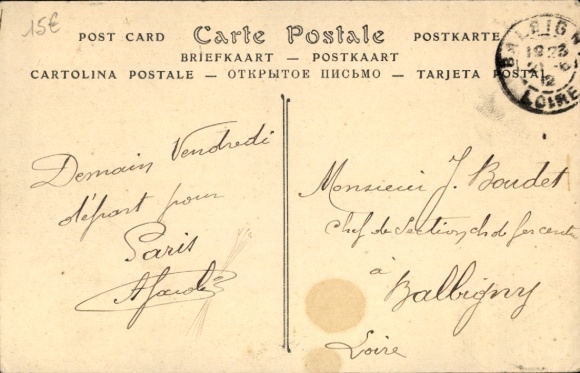 15€
POST CARD Carte Postale POSTKARTE
BRIEFKAART — POSTKAART
CARTOLINA POSTALE — ОТКРЫТОЕ ПИСЬМО — TARJETA POSTAL
BALBIGNY
LOIRE
Demain Vendredi
départ pour
Paris
Monsieur J. Boudet
chef de Section ch de fer
à
Balbigny
Loire